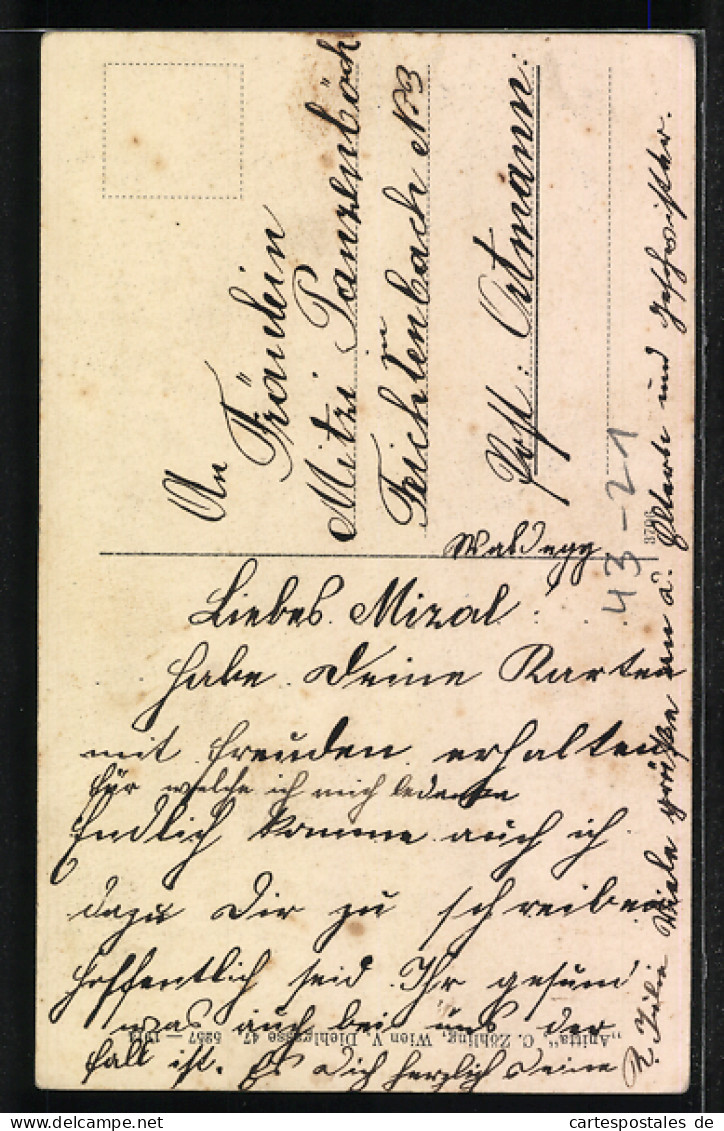 An
Fräulein
Mitzi Panzenböck
in
Feichtenbach N. 3
Post: Ortmann.
Waldegg.
3796
43-21
Liebes Mizal!
habe Deine Karten
mit freuden erhalten
für welche ich mich bedanke
Endlich komme auch ich
dazu Dir zu schreiben
hoffentlich seid Ihr gesund
was auch bei uns der
fall ist. Es Dich herzlich Deine
Viele grüße an d. Eltern und geschwister.
„Anitta", C. Zöhling, Wien V, Diehlgasse 47. 5257 —
delcampe.net
cartespostales de